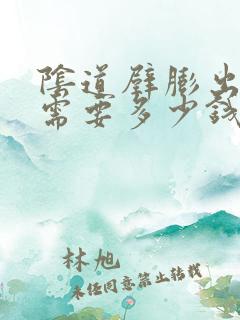 陰道壁膨出
需要多少錢
林旭
未任同意禁止转载